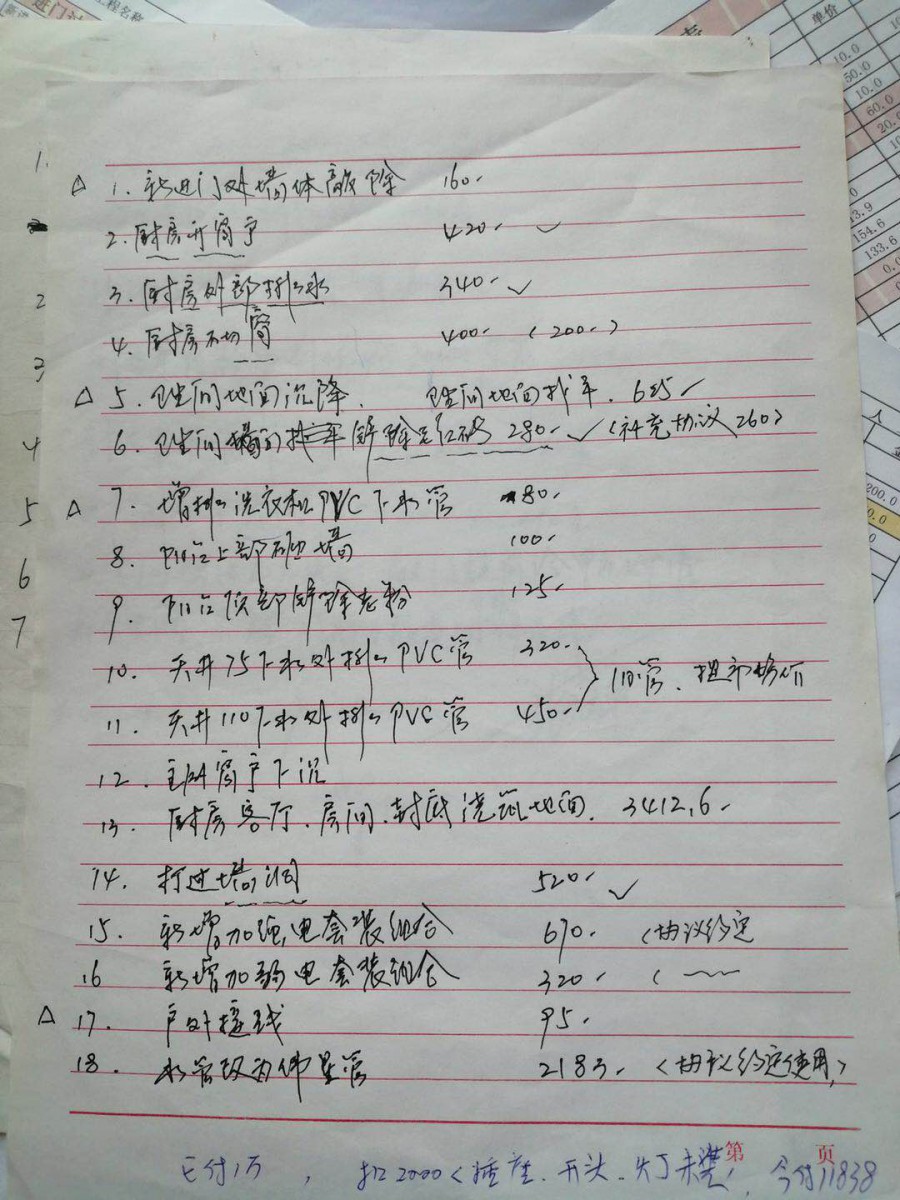 工程名称
进门
单价
10.0
50.0
10.0
60.0
20.0
13.9
154.6
133.6
0.0
200.0
0.0
1.
2
3
4
5
6
7
△ 1. 新进门外墙体敲除 160.
2. 厨房开窗户 420. ✓
3. 厨房外部排水 340. ✓
4. 厨房不切窗 400. (200.)
△ 5. 卫生间地面沉降. 卫生间地面找平. 685 ✓
6. 卫生间墙面 铲除见红砖 280. ✓ (补充协议260)
△ 7. 增排洗衣机PVC下水管 80.
8. 阳台上部砌墙 100.
9. 阳台顶部铲除老粉 125.
10. 天井75下水外排PVC管 320.
11. 天井110下水外排PVC管 450. 110管. 担市场价
12. 主卧窗户下沉
13. 厨房客厅、房间、封底浇筑地面. 3412.6.
14. 打过墙洞 520. ✓
15. 新增加强电套装组合 670. (协议约定
16 新增加弱电套装组合 320. (
△ 17. 户外接线 95.
18. 水管改为伟星管 2183. (协议约定使用)
第 页
已付1万, 扣2000(插座、开关、灯未装, 今付11838